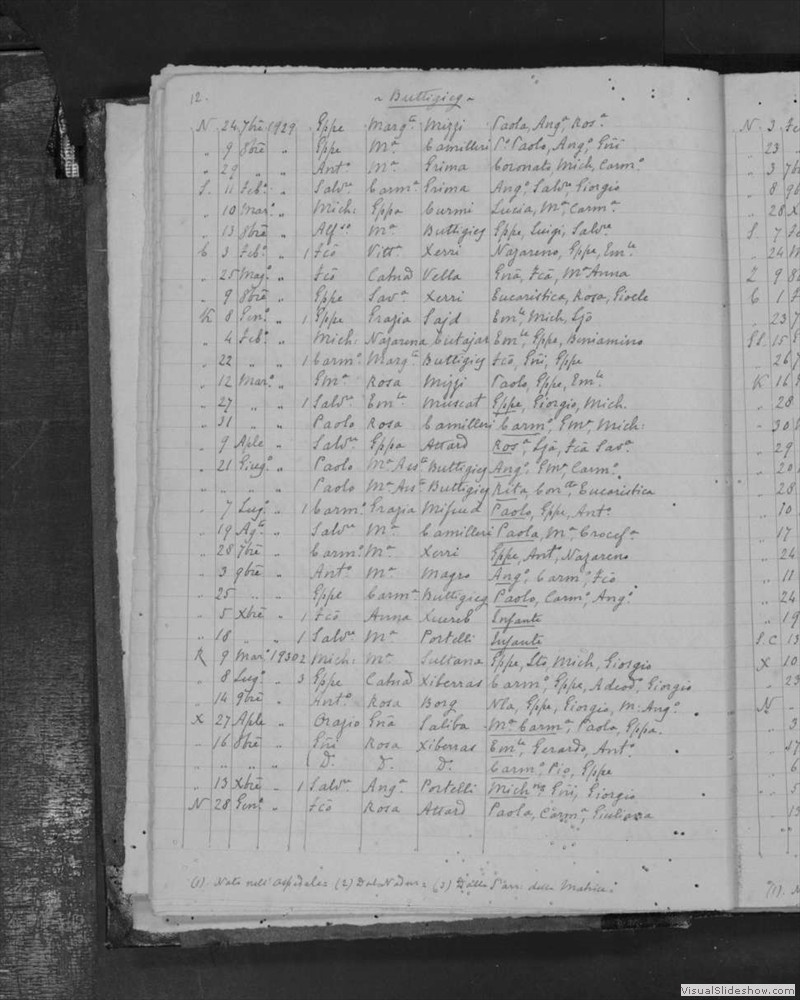 12. ~ Buttigieg ~
N 24 7bre 1929 Gppe Margta Mizzi Paola, Anga, Rosa
„ 9 8bre „ Gppe Ma Camilleri Po Paolo, Ango, Gni
„ 29 „ „ Anto Ma Grima Coronato, Mich, Carmo
S. 11 Febo „ Salvre Carma Grima Ango, Salvre, Giorgio
„ 10 Maro „ Mich: Gppa Curmi Lucia, Ma, Carma
„ 13 8bre „ Alfso Ma Buttigieg Gppe, Luigi, Salvre
C 3 Febo „ 1 Fco Vitta Xerri Nazareno, Gppe, Emle
„ 25 Mago „ Fco Catna Vella Gna, Fca, Ma Anna
„ 9 8bre „ Gppe Sava Xerri Eucaristica, Rosa, Gioele
K 8 Geno „ 1 Gppe Grazia Sajd Emle, Mich, Ljo
„ 4 Febo „ Mich: Nazarena Cutajar Emle, Gppe, Beniamino
„ 22 „ „ 1 Carmo Margta Buttigieg Fco, Gni, Gppe
„ 12 Maro „ Emle Rosa Mizzi Paolo, Gppe, Emle
„ 27 „ „ 1 Salvre Emla Muscat Gppe, Giorgio, Mich.
„ 31 „ „ Paolo Rosa Camilleri Carmo, Emle, Mich:
„ 9 Aple „ Salvre Gppa Attard Rosa, Lja, Fca Sava
„ 21 Giugo „ Paolo Ma Assta Buttigieg Ango, Emle, Carmo
„ „ „ „ Paolo Ma Assta Buttigieg Rita, Contta, Eucaristica
„ 7 Lugo „ 1 Carmo Grazia Mifsud Paolo, Gppe, Anto
„ 19 Agto „ Salvre Ma Camilleri Paola, Ma, Crocefa
„ 28 7bre „ Carmo Ma Xerri Gppe, Ant, Nazareno
„ 3 9bre „ Anto Ma Magro Ango, Carmo, Fco
„ 25 „ „ Gppe Carma Buttigieg Paolo, Carmo, Ango
„ 5 Xbre „ 1 Fco Anna Xuereb Infante
„ 18 „ „ 1 Salvre Ma Portelli Infante
R 9 Maro 1930 2 Mich: Ma Sultana Gppe, Sto, Mich, Giorgio
„ 8 Lugo „ 3 Gppe Catna Xiberras Carmo, Gppe, Adeodo, Giorgio
„ 14 9bre „ Anto Rosa Borg Nla, Gppe, Giorgio, M. Ango
X 27 Aple „ Orazio Gna Saliba Ma Carma, Paola, Gppa.
„ 16 8bre „ Gni Rosa Xiberras Emle, Gerardo, Anto
„ „ „ „ D. D. D. Carmo, Pio, Gppe
„ 13 Xbre „ 1 Salvre Anga Portelli Michele Gni, Giorgio
N 28 Geno „ Fco Rosa Attard Paola, Carma, Giuliana
(1) Nato nell' Ospedale: (2) Dal Nadur: (3) Dalla Parr. della Matrice:
N. 3
„ 23
„ 3
„ 8
„ 28
S. 7
„ 24
Z 9
C 1
„ 23
15
„ 26
K 16
„ 28
„ 30
„ 29
„ 20
„ 28
„ 10
„ 17
„ 24
„ 11
„ 24
„ 19
S.C 13
X 10
„ 23
N
VisualSlideshow.com